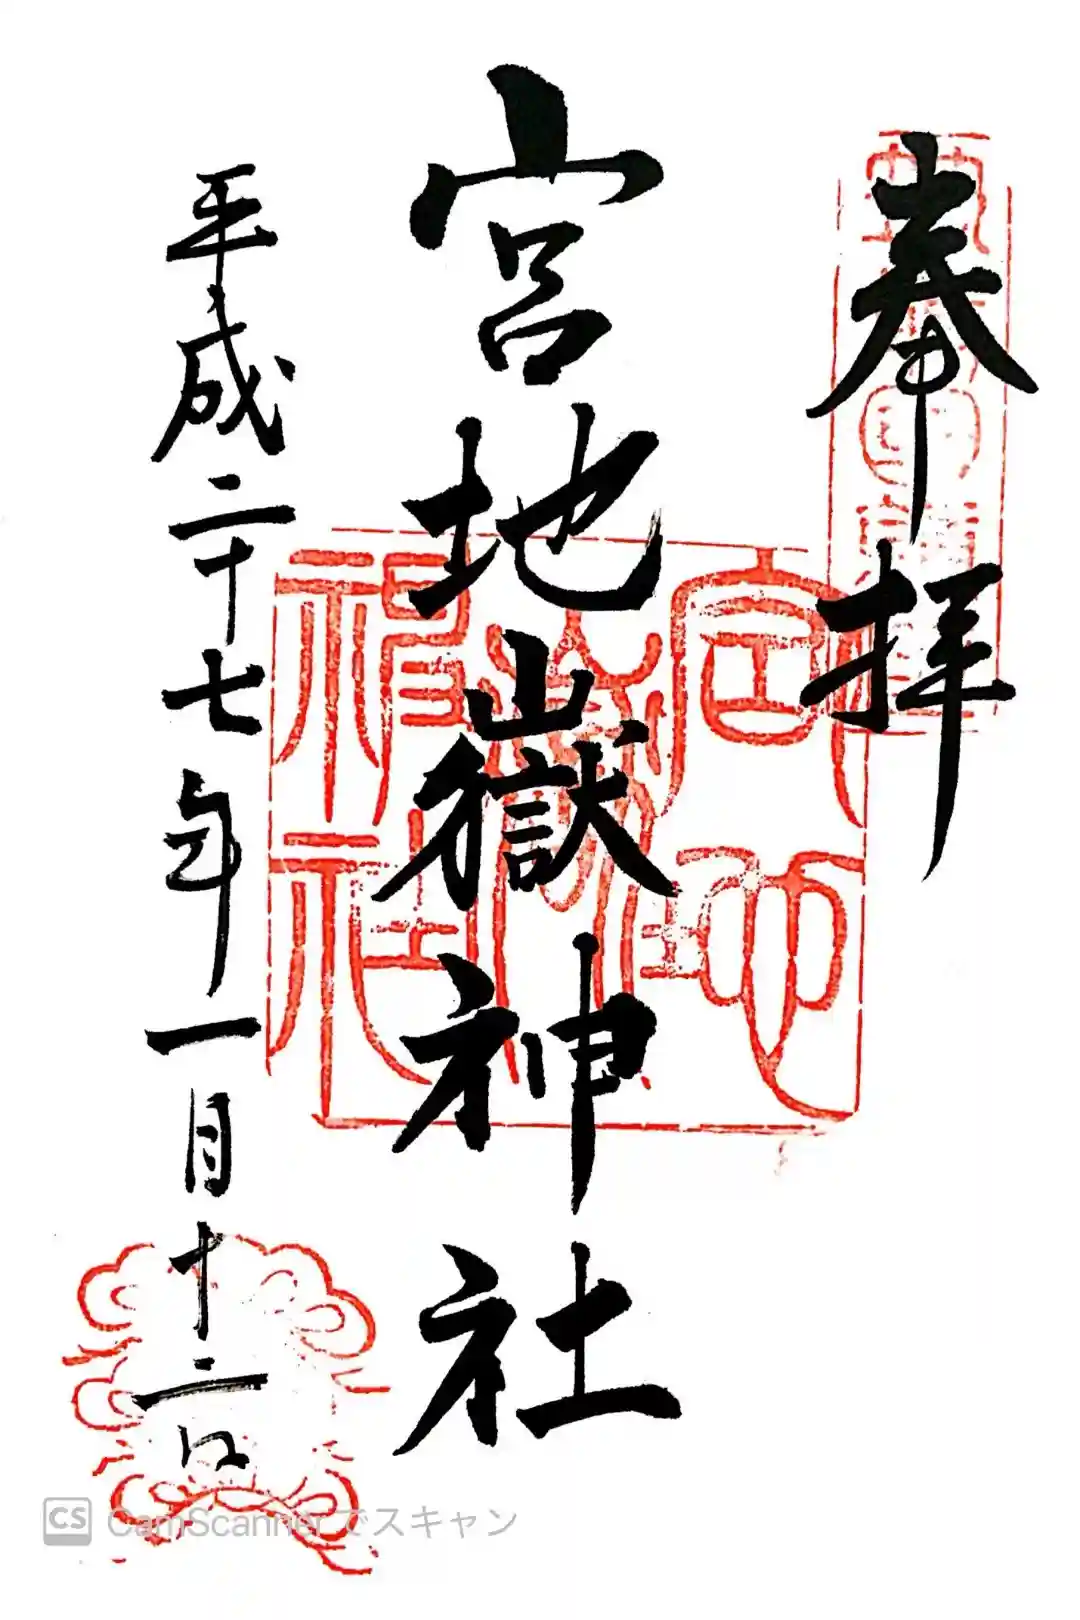 奉拝
宮地嶽神社
平成二十七年一月十二日
宮地嶽神社
CS CamScanner でスキャン